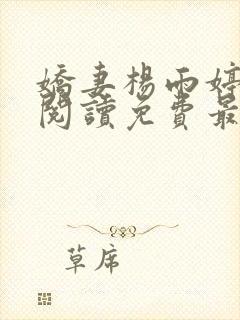 嬌妻楊雨婷
閱讀免費最
草席